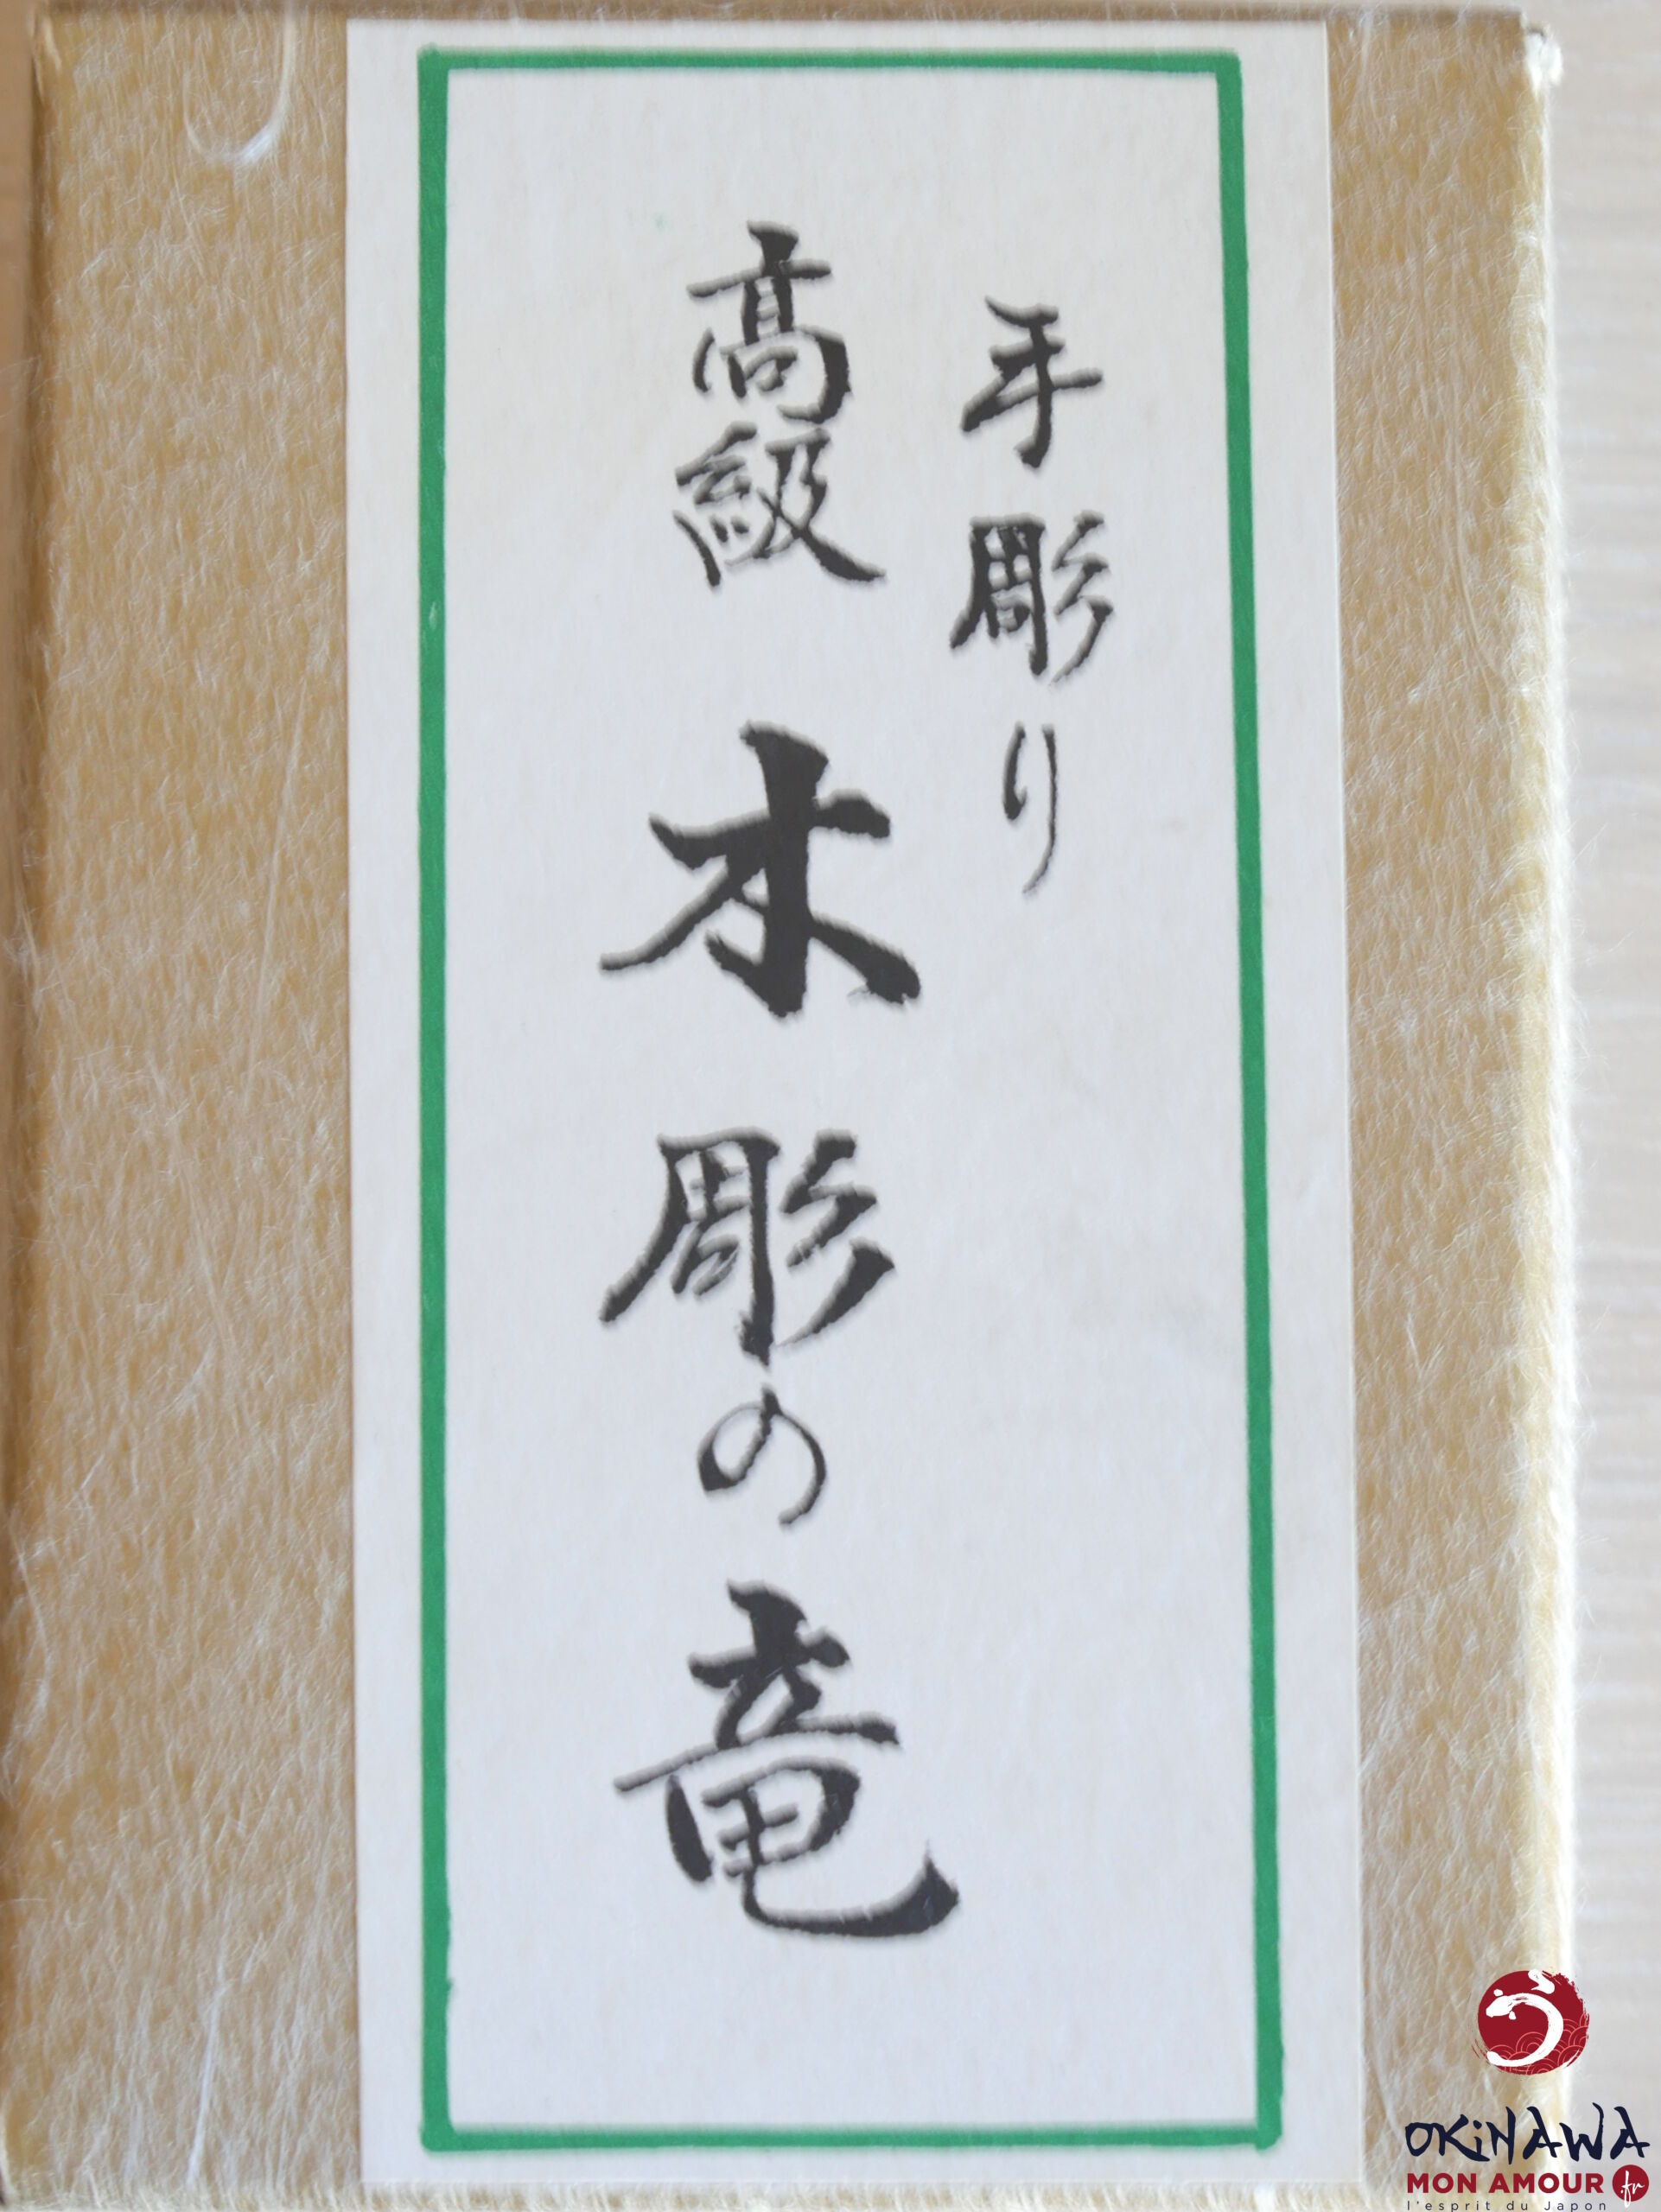 手彫り
高級 木彫の竜
OKiNAWA
MON AMOUR.fr
l'esprit du Japon